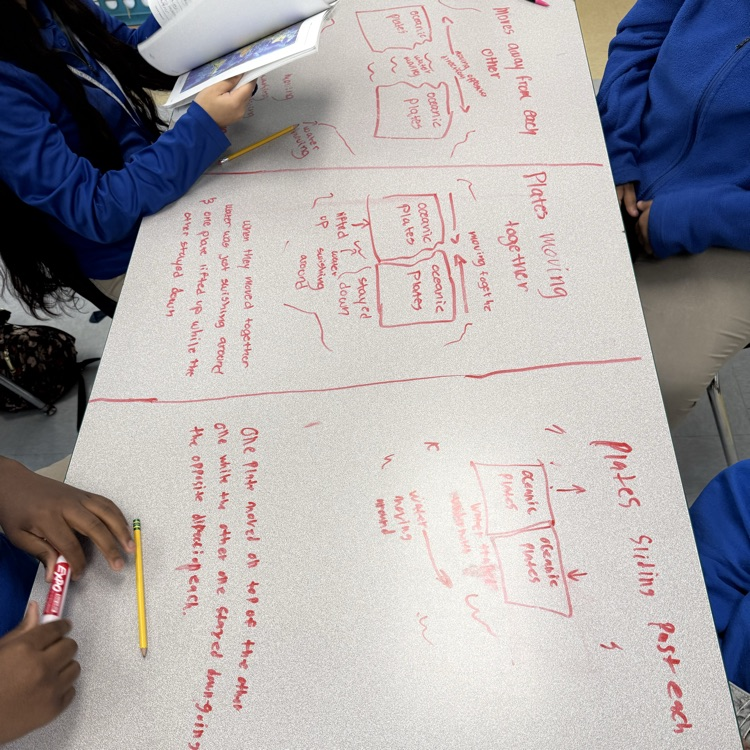 Moves away from each
other
moving opposite
directions
oceanic
plates
water
moving
oceanic
plates
water
moving
Plates moving
together
moving togethe
oceanic
plates
oceanic
plates
lifted
up
water
swishing
around
stayed
down
When they moved together
water was just swishing around
& one plate lifted up while the
other stayed down
Plates sliding past each
oceanic
plates
oceanic
plates
water
moving
around
One plate moved on top of the other
one while the other one stayed down going
the opposite direction each.
EXPO